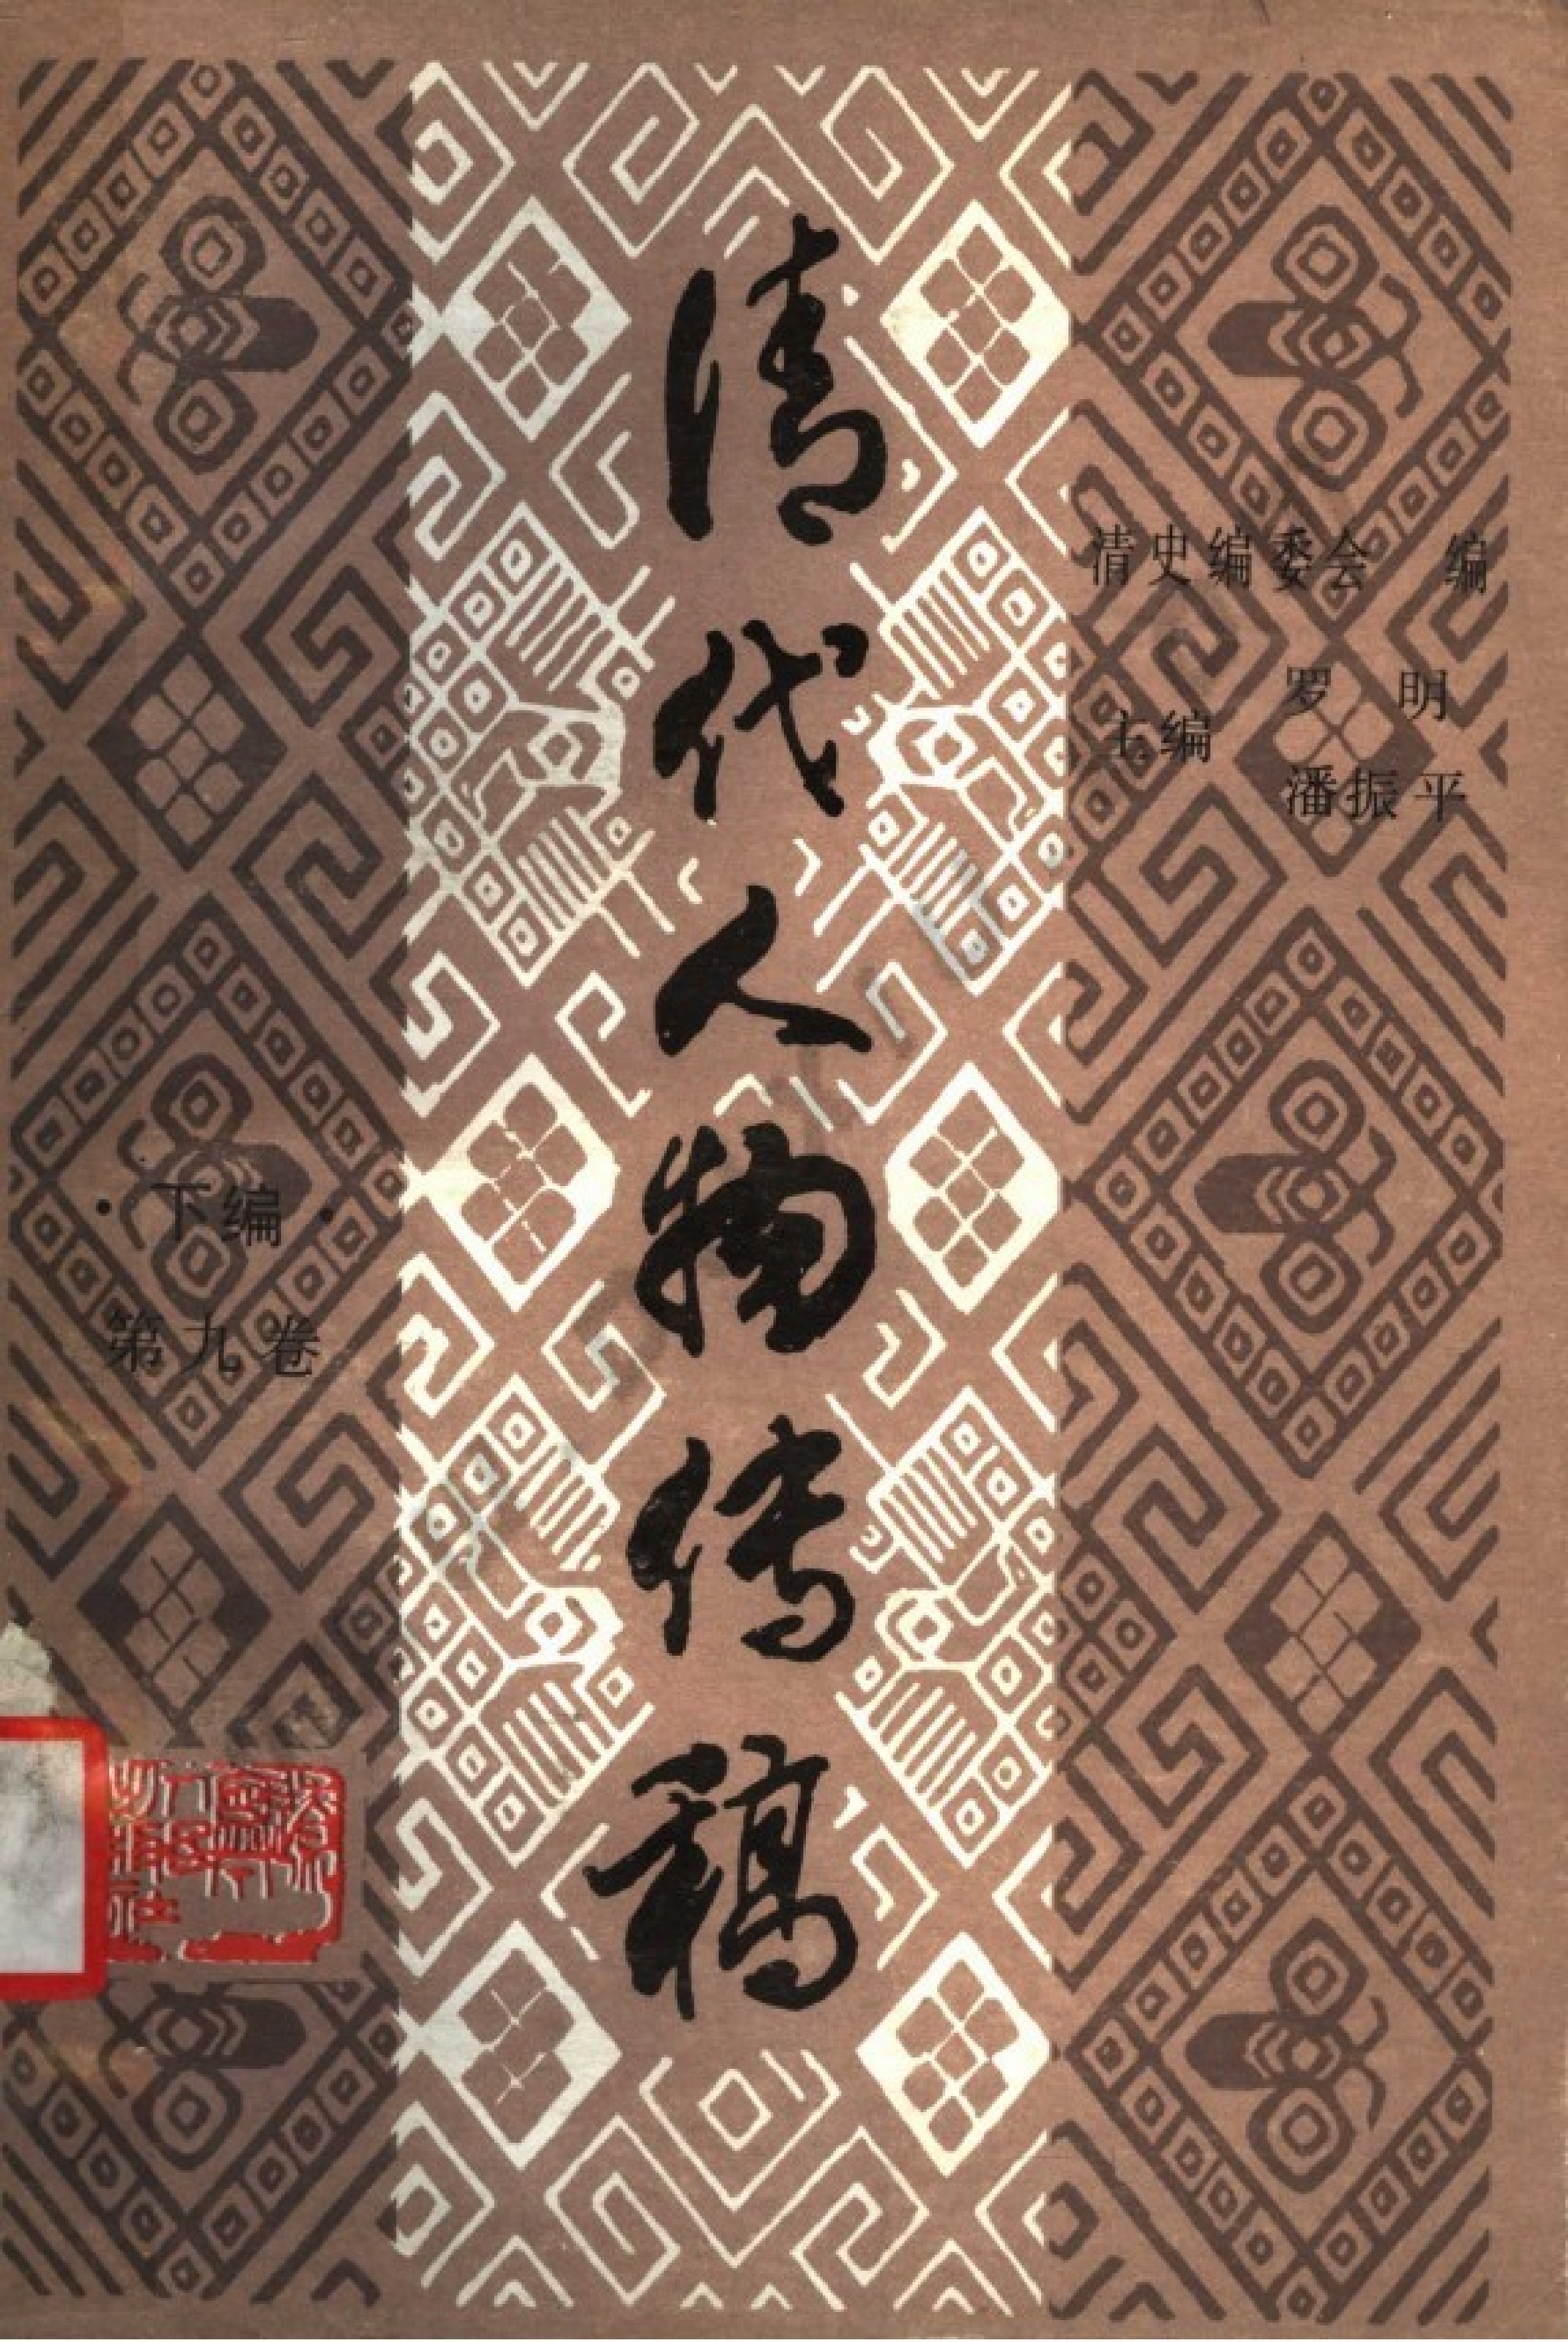 清代人物传稿
清史编委会 编
主编
罗 明
潘振平
·下编·
第九卷